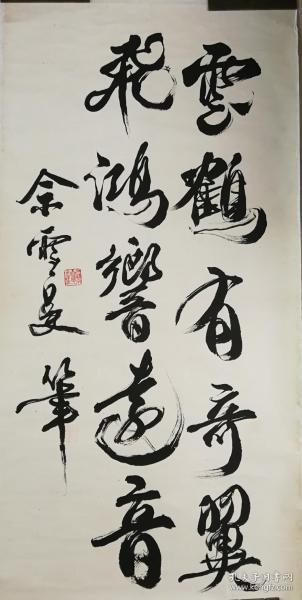 雲鶴有奇翼
飛鴻響遠音
余雪曼筆
孔夫子旧书网